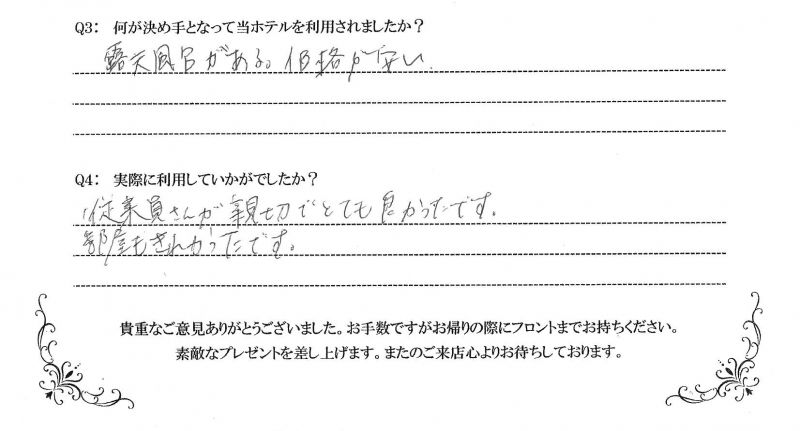 Q3: 何が決め手となって当ホテルを利用されましたか？
露天風呂がある。価格が安い
Q4: 実際に利用していかがでしたか？
従業員さんが親切でとても良かったです。
部屋もきれかったです。
貴重なご意見ありがとうございました。お手数ですがお帰りの際にフロントまでお持ちください。
素敵なプレゼントを差し上げます。またのご来店心よりお待ちしております。